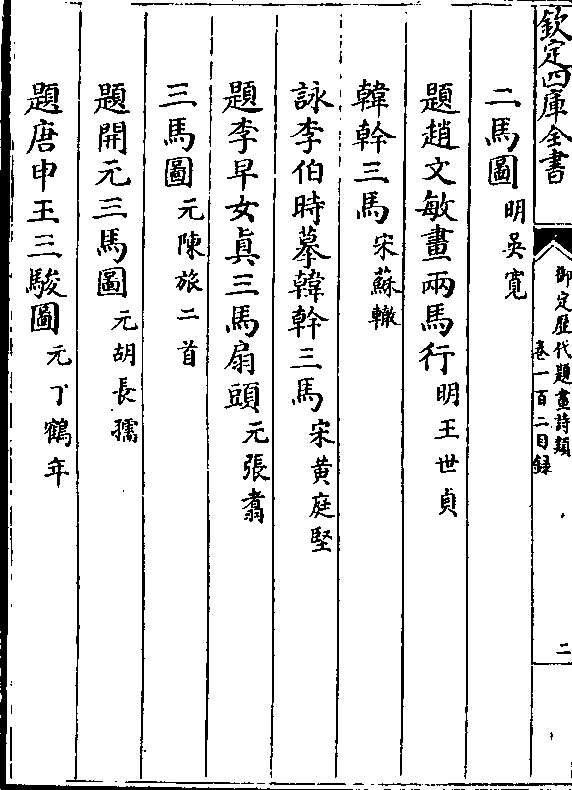 欽定四庫全書
御定歷代題畫詩類
卷一百二目錄
二
二馬圖 明吳寬
題趙文敏畫兩馬行 明王世貞
韓幹三馬 宋蘇轍
詠李伯時摹韓幹三馬 宋黄庭堅
題李早女真三馬扇頭 元張翥
三馬圖 元陳旅二首
題開元三馬圖 元胡長孺
題唐申王三駿圖 元丁鶴年